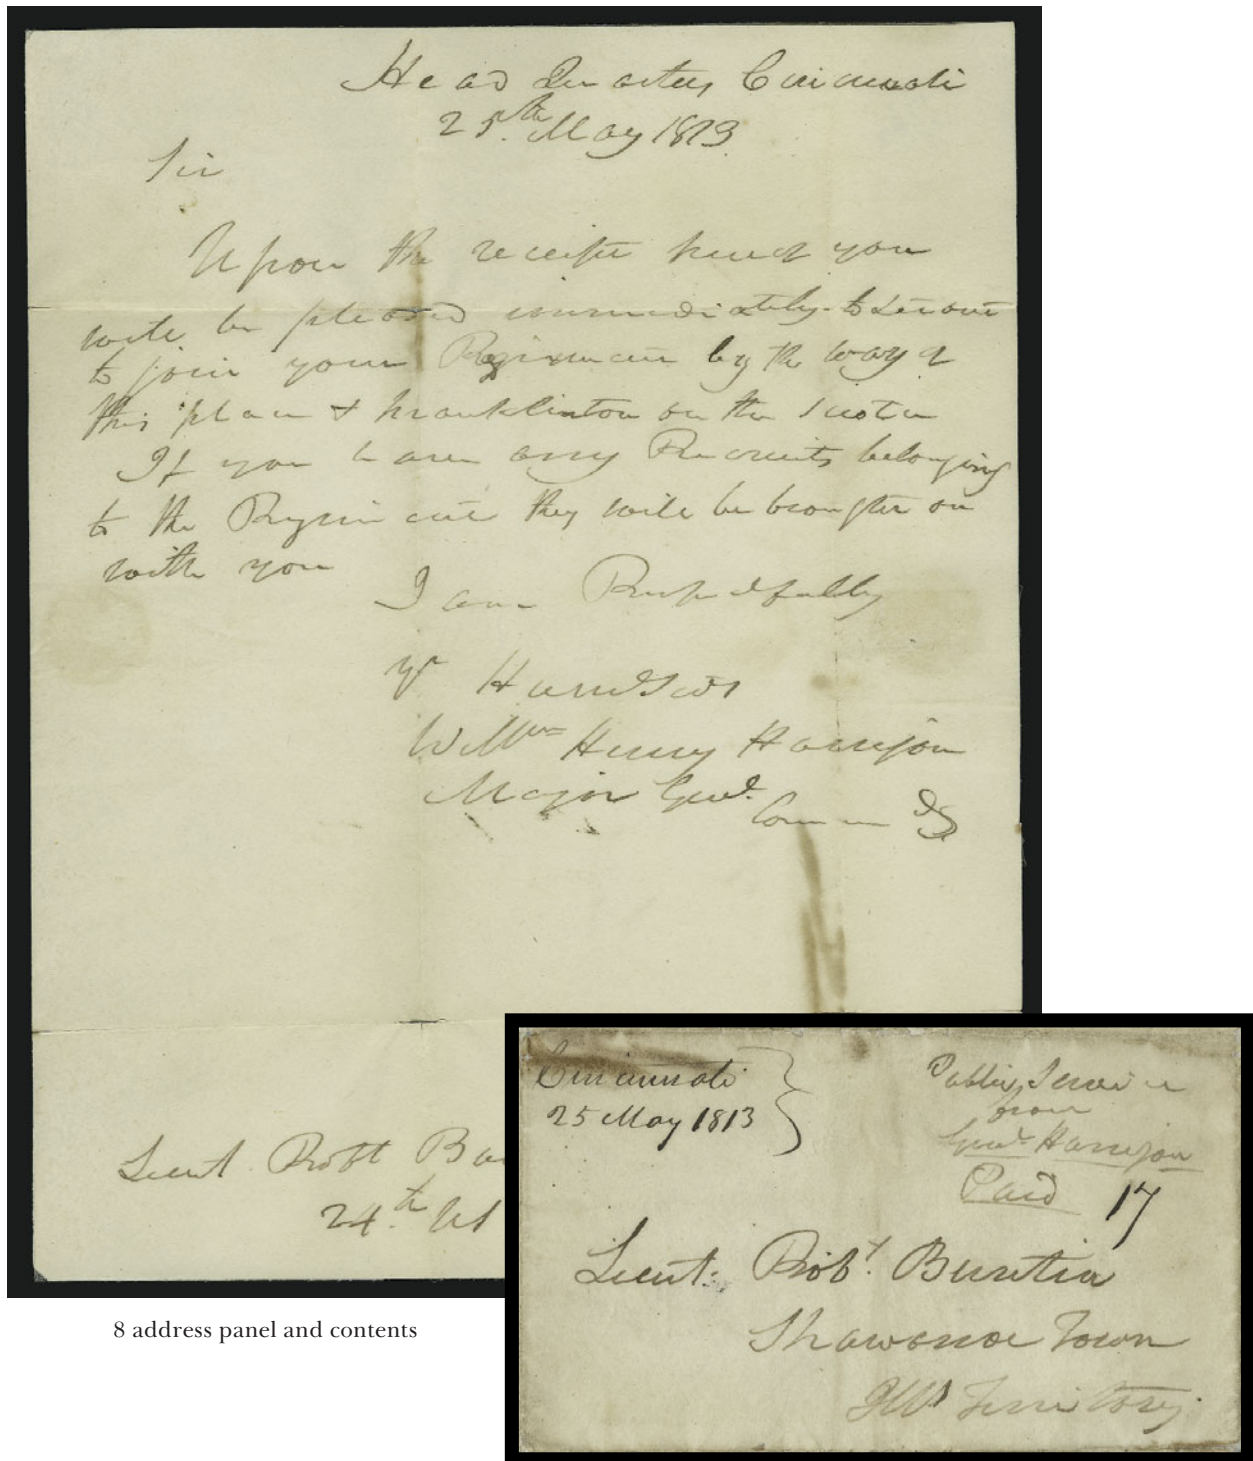 Head Quarters Cincinnati
25th May 1813
Sir
Upon the receipt hereof you
will be pleased immediately to set out
to join your Regiment by the way of
this place & Franklinton on the Sciota
If you have any Recruits belonging
to the Regiment they will be brought on
with you
I am Respectfully
yr HumSevt
Willm Henry Harrison
Major Genl.
Comm dg
Lieut Robt Ba
24th US
Cincinnati
25 May 1813
Public Service
from
Genl Harrison
Paid 17
Lieut. Robt.
Shawanoe Town
Ills Territory
8 address panel and contents